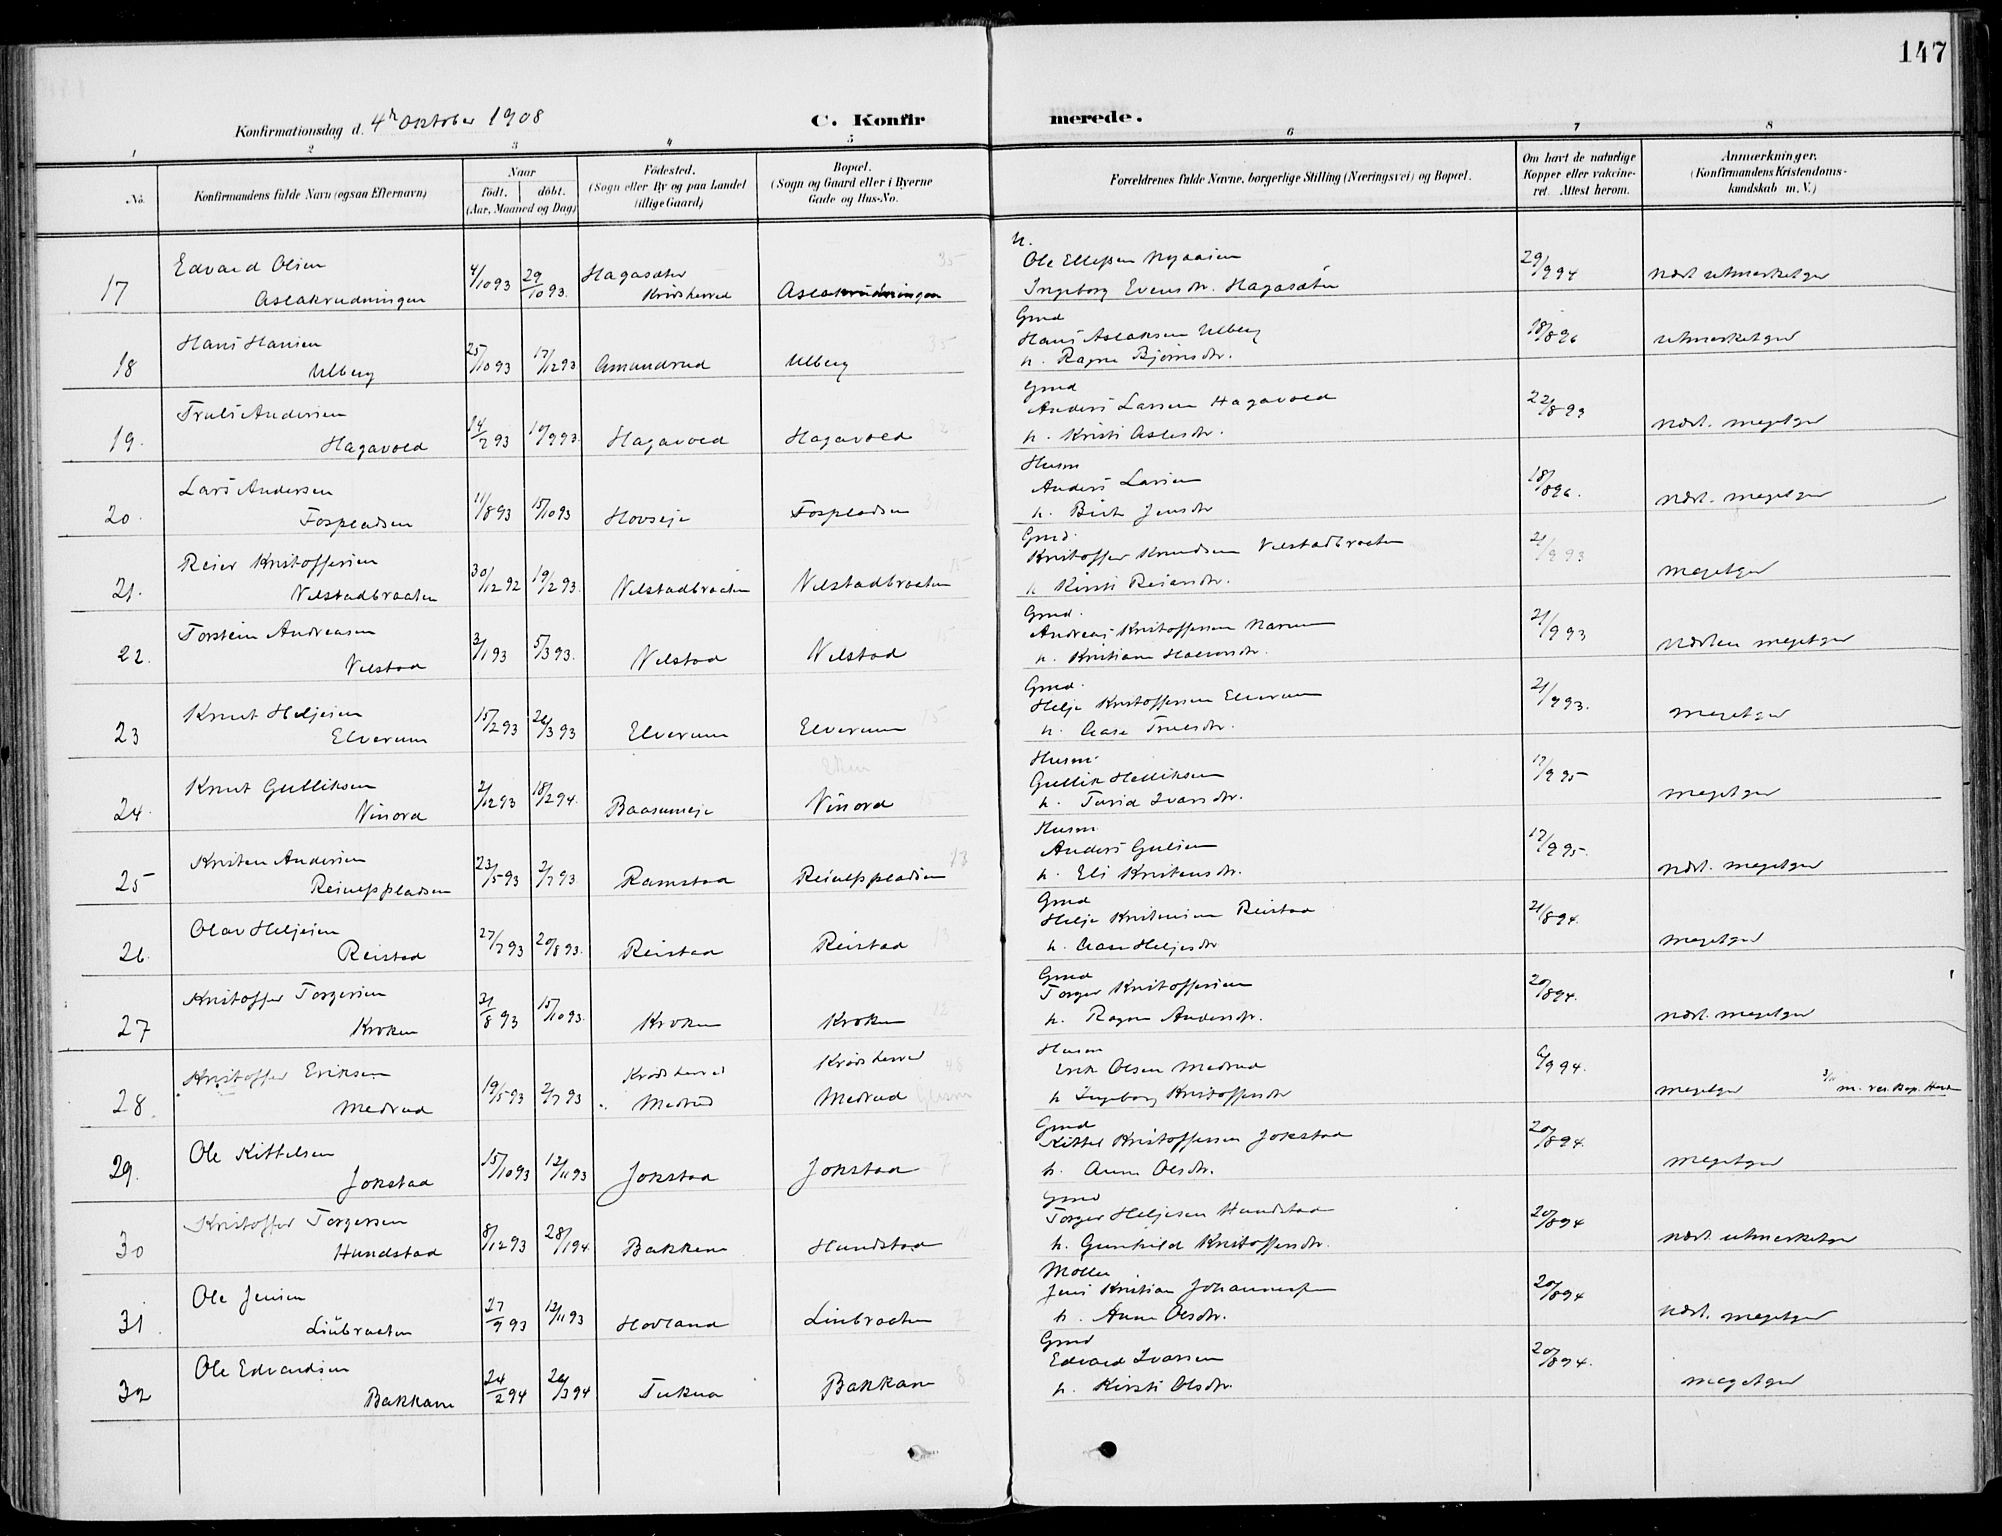 147
Konfirmationsdag d. 4de Oktober 1908
C. Konfirmerede.
1 2 3 4 5 6 7 8
No.
Konfirmandens fulde Navn (ogsaa Efternavn)
Naar
født. døbt.
(Aar, Maaned og Dag)
Fødested.
(Sogn eller By og paa Landet
tillige Gaard)
Bopæl.
(Sogn og Gaard eller i Byerne
Gade og Hus-No.
Forældrenes fulde Navne, borgerlige Stilling (Næringsvei) og Bopæl.
Om havt de naturlige
Kopper eller vakcine-
ret. Attest herom.
Anmærkninger.
(Konfirmandens Kristendoms-
kundskab m. V.)
Edvard Olsen 4/10 93 29/10 93. Hagasæter 35 u. Ole Ellefsen 29/9 94
17 Aslakrudningen Krødsherred Aslakrudningen Ingeborg Evensdr. Hagasæter nært utmerketgod
Hans Hansen 25/10 93 17/12 93 35 Gmd Hans Aslaksen Ulberg 18/8 96 utmerketgod
18 Ulberg Amundrud Ulberg h. Ragne Bjørnsdr.
Truls Andersen 14/2 93 19/9 93. Gmd Anders Larsen Hagavold 22/8 93
19. Hagavold Hagavold Hagavold h. Kristi Aslesdr. nært. megetgod
Lars Andersen 11/8 93 15/10 93 Husm Anders Larsen 18/8 96.
20. Fospladsen Hovseje Fospladsen h. Birit Jensdr nært. megetgod
Reier Kristoffersen 30/12 92 19/2 93. 15 Gmd. Kristoffer Knudsen Velstadbraaten 21/9 93
21. Velstadbraaten Velstadbraaten Velstadbraaten h Kirsti Reiersdr. megetgod
Torstein Andreasen 3/1 93 5/3 93. Gmd. Andreas Kristoffersen 21/9 93
22. Velstad Velstad Velstad h. Kristiane Halvorsdr. megetgod
Knut Heljesen 15/2 93 26/3 93 15 Gmd. Helje Kristoffersen Elverum 21/9 93.
23 Elverum Elverum Elverum h. Aase Trulsdr. megetgod
Knut Gulliksen 2/12 93 18/2 94. Husm. Gullik Helliksen 17/9 95
24. Vinord Baasumeje Vinord h. Turid Ivarsdr. megetgod
Kristen Andersen 23/5 93 2/7 93 13 Husm. Anders Gulsen 17/9 95.
25 Ramstad h. Eli Kristensdr. nært. megetgod
Olav Heljesen 27/7 93 20/8 93. 13 Gmd Helje Kristensen Reistad 21/8 94.
26. Reistad Reistad Reistad h. Aase Heljesdr megetgod
Kristoffer Torgersen 31/8 93 15/10 93. Gmd Torger Kristoffersen 20/8 94.
27 Kroken Kroken Kroken h. Ragne Andersdr. nært. megetgod
Kristoffer Eriksen 19/5 93 2/7 93 Krødsherred Krødsherred 48 Husm Erik Olsen Medrud 6/9 94.
28. Medrud Medrud Medrud h Ingeborg Kristoffersdr megetgod
Ole Kittelsen 15/10 93 12/11 93 Gmd Kittel Kristoffersen Jokstad 20/8 94.
29. Jokstad Jokstad Jokstad 7 h. Anne Olsdr. megetgod
Kristoffer Torgersen 8/12 93 28/1 94. Gmd Torger Heljesen Hundstad 20/8 94
30 Hundstad Bakkene Hundstad h. Gunhild Kristoffersdr. nært. utmerketgod
Ole Jensen 27/9 93 12/11 93 Møller Jens Kristian Johannesen 20/8 94
31. Linbraaten Hovland Linbraaten 7 h. Anne Olsdr. nært. megetgod
Ole Edvardsen 24/2 94 26/3 94 Gmd Edvard Ivarsen 20/8 94.
32 Bakkane Bakkane 8 h. Kirsti Olsdr. megetgod